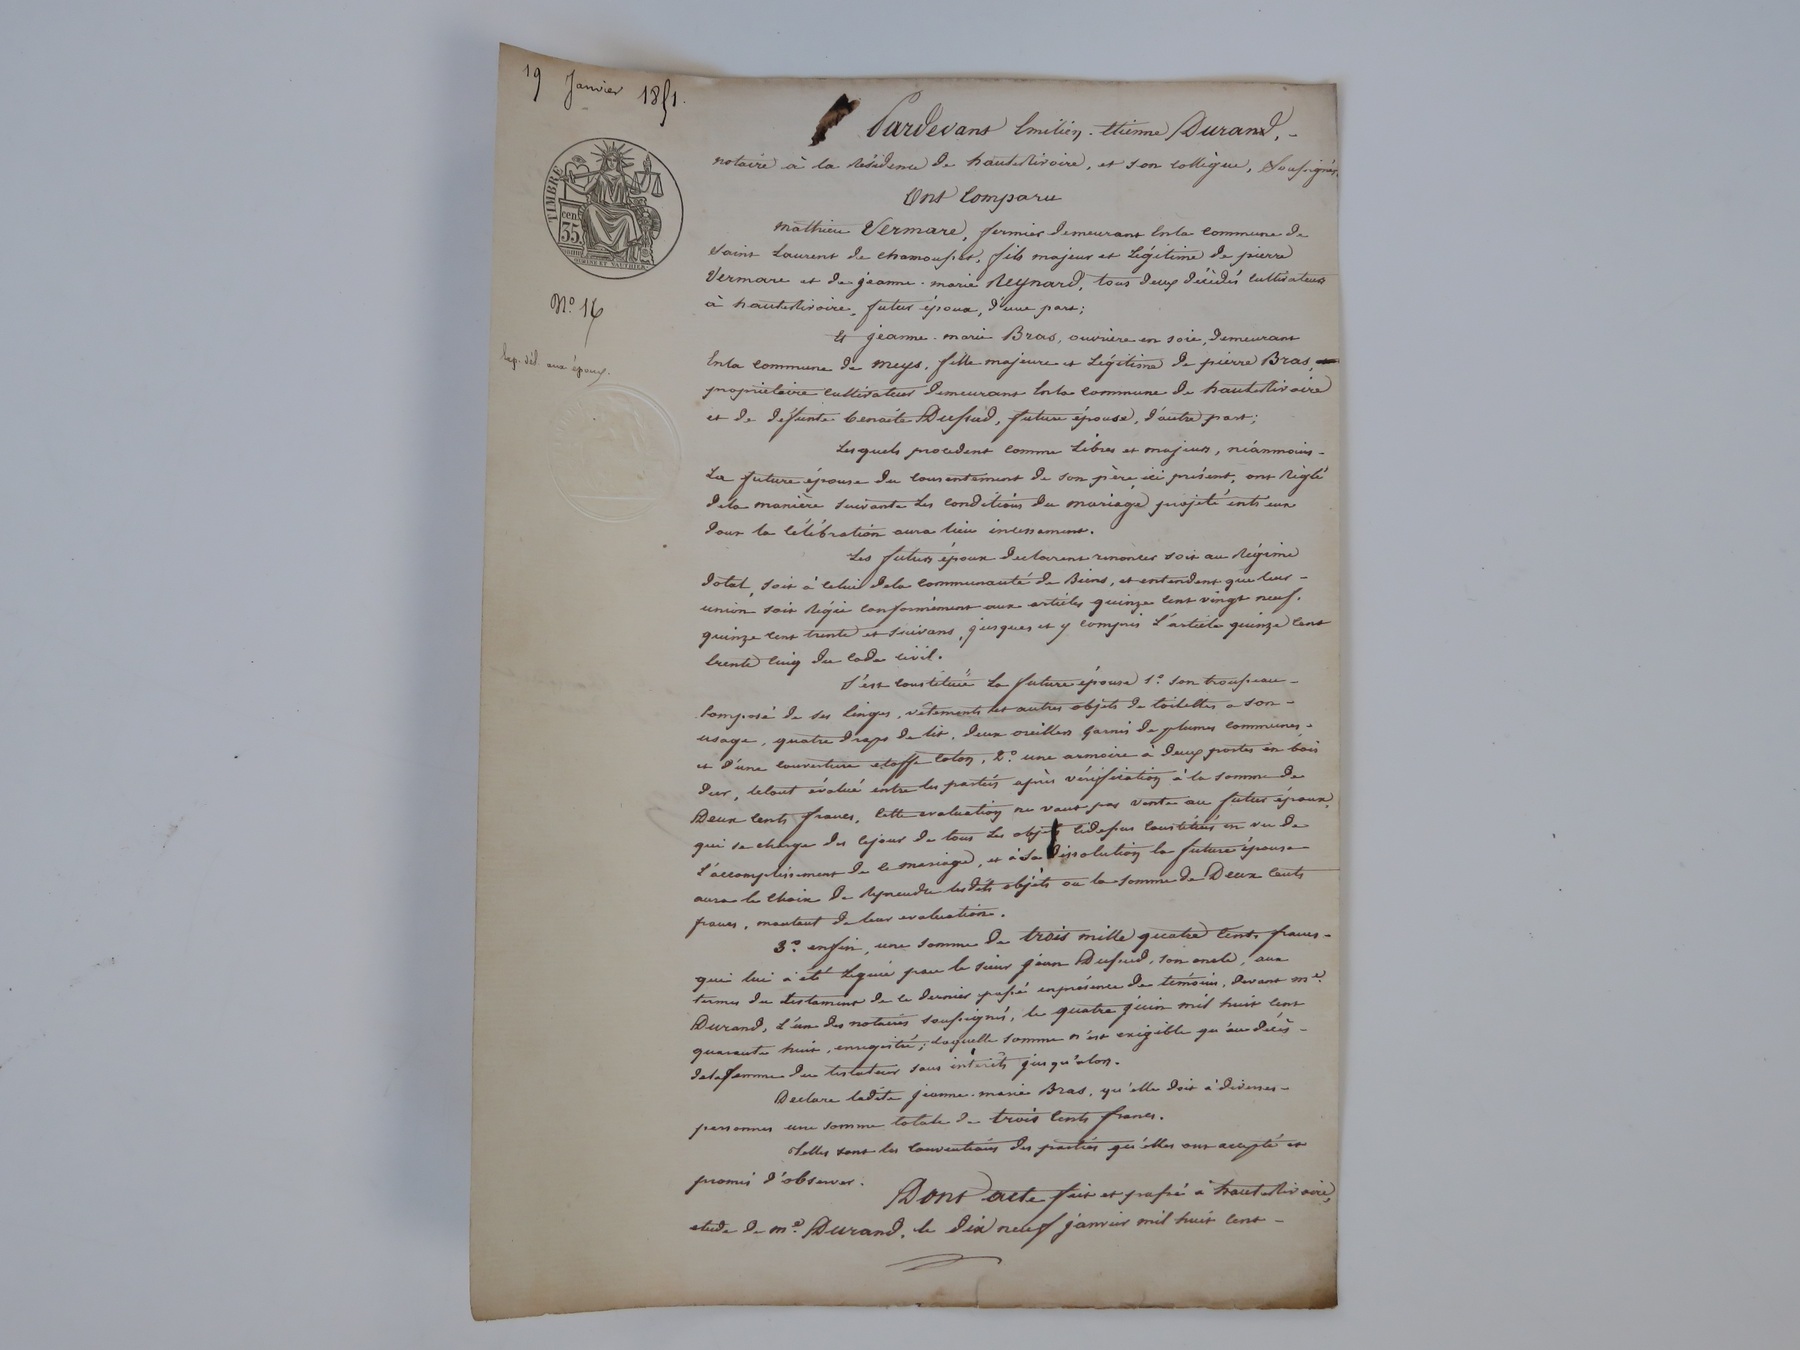 19 Janvier 1851.
TIMBRE
cen.
35
N.º 16
Exp. dél. aux époux.
Pardevant Emilien-Etienne Durand,
notaire à la résidence de haute Rivoire, et son collègue, Soussignés,
Ont Comparu
mathieu Vermare, fermier demeurant En la commune de
Saint Laurent de chamousset, fils majeur et Légitime de pierre
Vermare et de jeanne-marie Reynard, tous deux décédés cultivateurs
à haute Rivoire, futur époux, d'une part;
Et jeanne-marie Bras, ouvrière en soie, demeurant
En la commune de meys, fille majeure et Légitime de pierre Bras,
propriétaire cultivateur demeurant En la commune de haute Rivoire
et de défunte benoite Dussud, future épouse, d'autre part;
Lesquels procedent comme Libres et majeurs, néanmoins
La future épouse du consentement de son père ici présent, ont Réglé
de la manière suivante Les conditions du mariage projeté entr'eux
dont la célébration aura lieu incessament.
Les futurs époux declarent renoncer soit au Régime
dotal, soit à celui de la communauté de Biens, et entendent que leur
union soit Régie conformément aux articles quinze cent vingt neuf,
quinze cent trente et suivans, jusques et y compris L'article quinze cent
trente cinq du code civil.
S'est constituée La future épouse 1.º son trousseau
composé de ses linges, vêtements et autres objets de toilettes a son
usage, quatre draps de lit, deux oreillers garnis de plumes communes,
et d'une couverture etoffe coton, 2.º une armoire à deux portes en bois
dur, le tout évalué entre les parties après vérification à la somme de
Deux cents francs, cette evaluation ne vaut pas vente au futur époux,
qui se charge dès ce jour de tous les objets cidessus constitués en vu de
L'accomplissement de ce mariage, et à sa dissolution la future épouse
aura le choix de Reprendre lesdits objets ou la somme de Deux cents
francs, montant de leur evaluation.
3.º enfin, une somme de trois mille quatre cents francs
qui lui a été Léguée par le sieur jean Dussud, son oncle, aux
termes du testament de ce dernier passé en présence de témoins, devant m.e
Durand, L'un des notaires soussignés, le quatre juin mil huit cent
quarante huit, enregistré; laquelle somme n'est exigible qu'au décès
de la femme du testateur sans intérêts jusqu'alors.
Declare ladite jeanne-marie Bras, qu'elle doit à diverses
personnes une somme totale de trois cents francs.
Telles sont les conventions des parties qu'elles ont accepté et
promis d'observer.
Dont acte fait et passé à haute Rivoire,
etude de m.e Durand, le dix neuf janvier mil huit cent